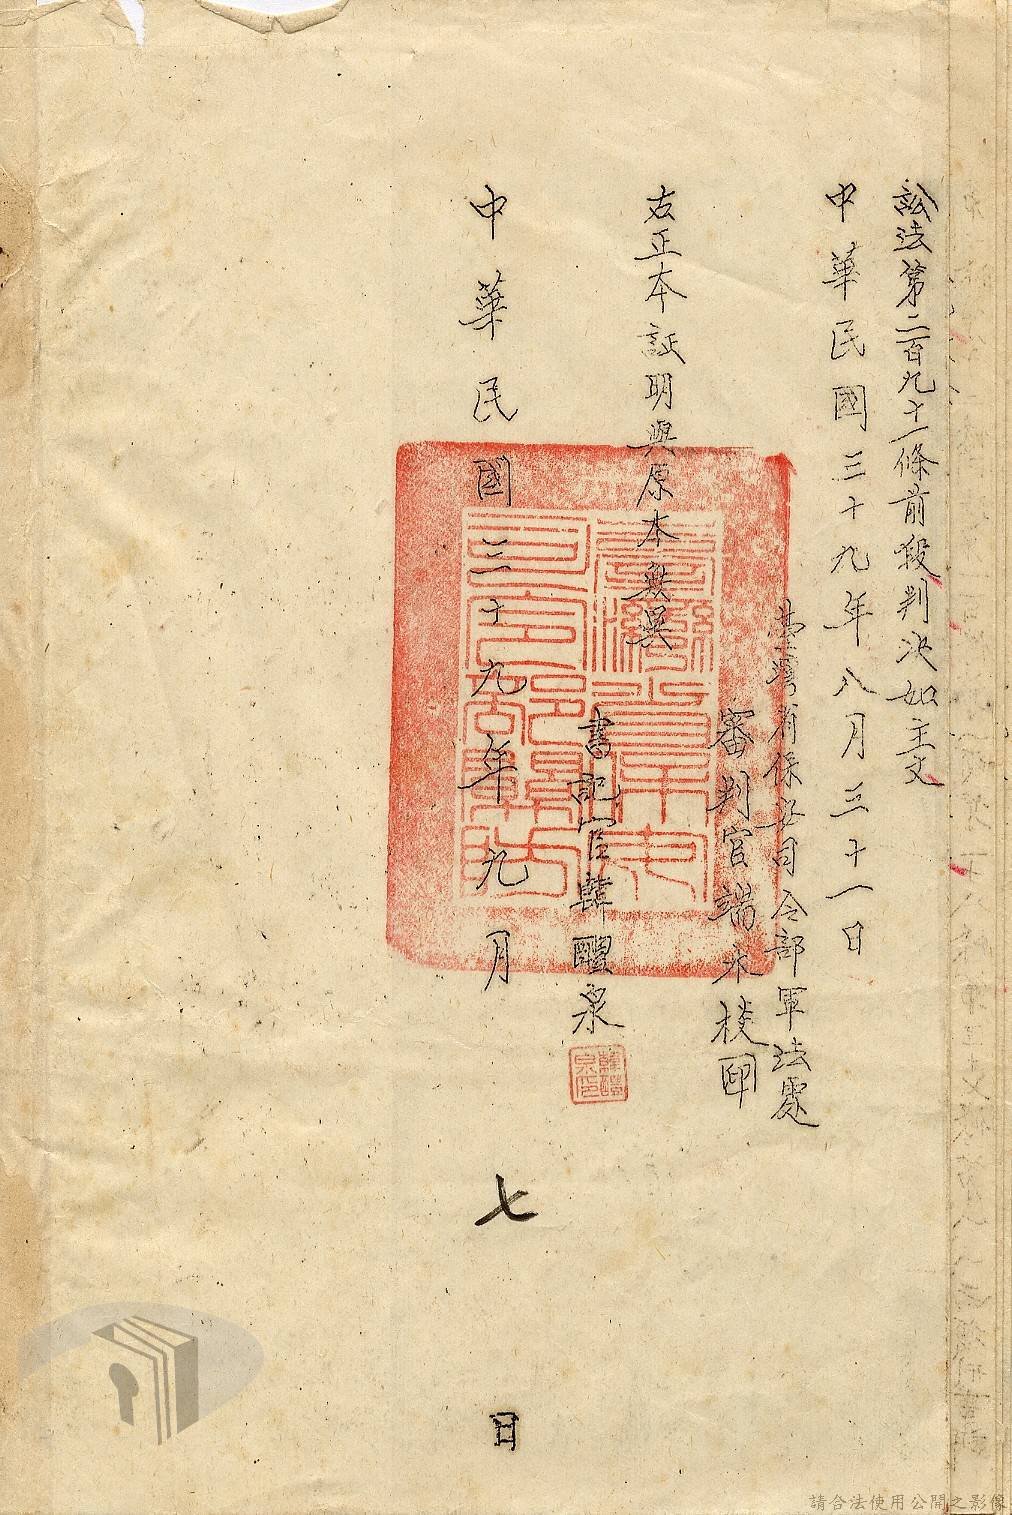 訟法第二百九十一條前段判决如主文
中華民國三十九年八月三十一日
臺灣省保安司令部軍法處
審判官端木棪印
右正本証明與原本無異
書記官韓醒泉
中華民國三十九年九月七日
臺灣省保安司令部關防
請合法使用公開之影像